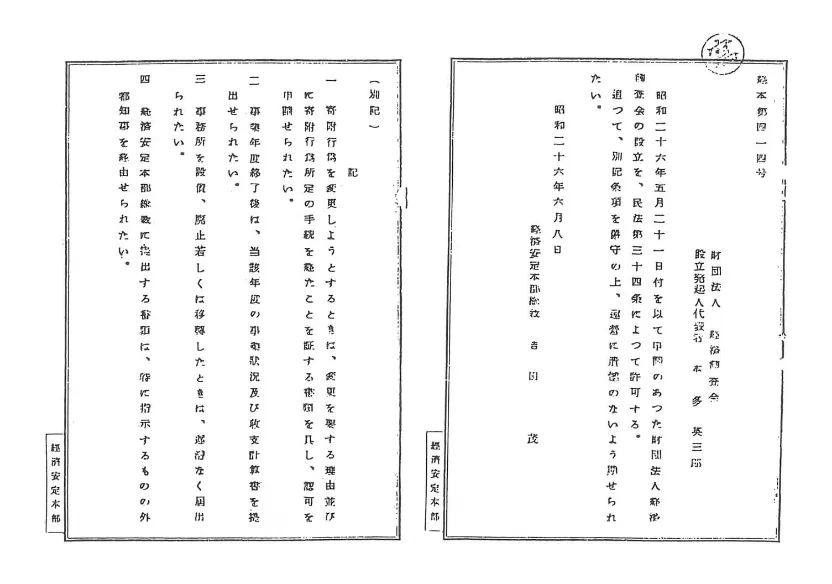 経本第四一四号
財団法人 経済調査会
設立発起人代表者 本多英三郎
昭和二十六年五月二十一日付を以て申請のあつた財団法人経済
調査会の設立を、民法第三十四条によつて許可する。
追つて、別記条項を厳守の上、運営に遺憾のないよう期せられ
たい。
昭和二十六年六月八日
経済安定本部総裁 吉田茂
経済安定本部
(別記)
記
一 寄附行為を変更しようとするときは、変更を要する理由並び
に寄附行為所定の手続を経たことを証する書類を具し、認可を
申請せられたい。
二 事業年度終了後は、当該年度の事業状況及び収支計算書を提
出せられたい。
三 事務所を設置、廃止若しくは移転したときは、遅滞なく届出
られたい。
四 経済安定本部総裁に提出する書類は、特に指示するものの外
都知事を経由せられたい。
経済安定本部